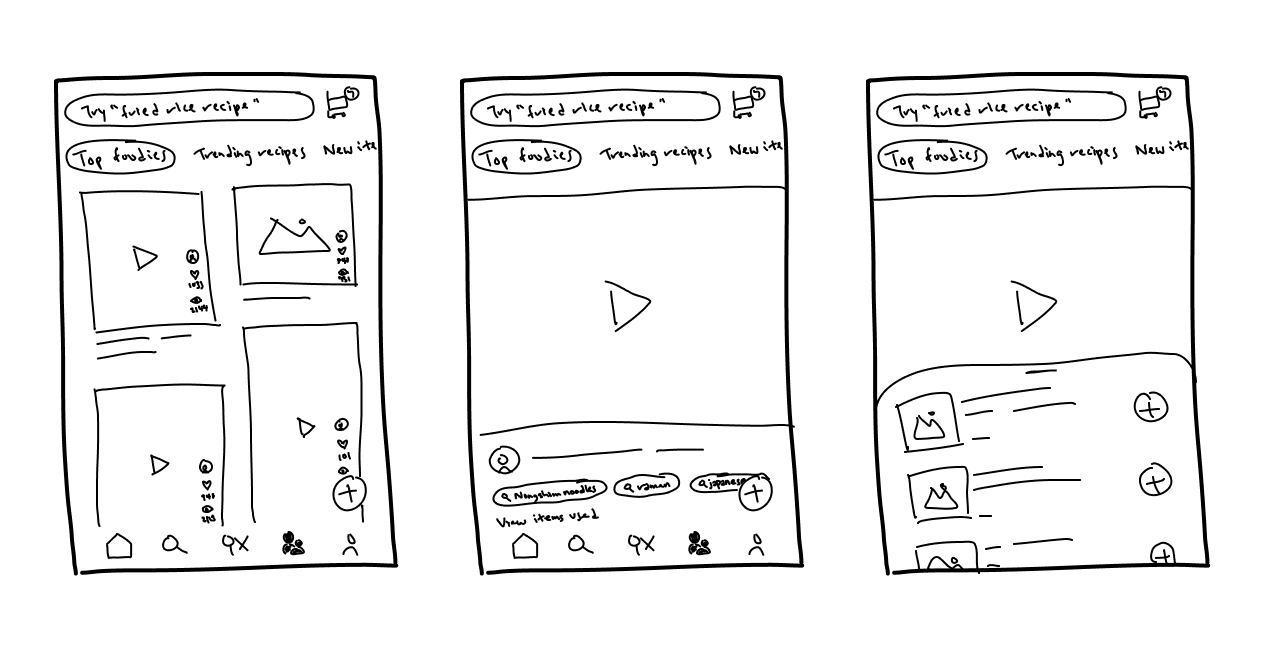 Try "fried rice recipe"
Top foodies Trending recipes New ite
1033
2144
101
Try "fried rice recipe"
Top foodies Trending recipes New ite
Nongsham noodles ramen japanese
View items used
Try "fried rice recipe"
Top foodies Trending recipes New ite